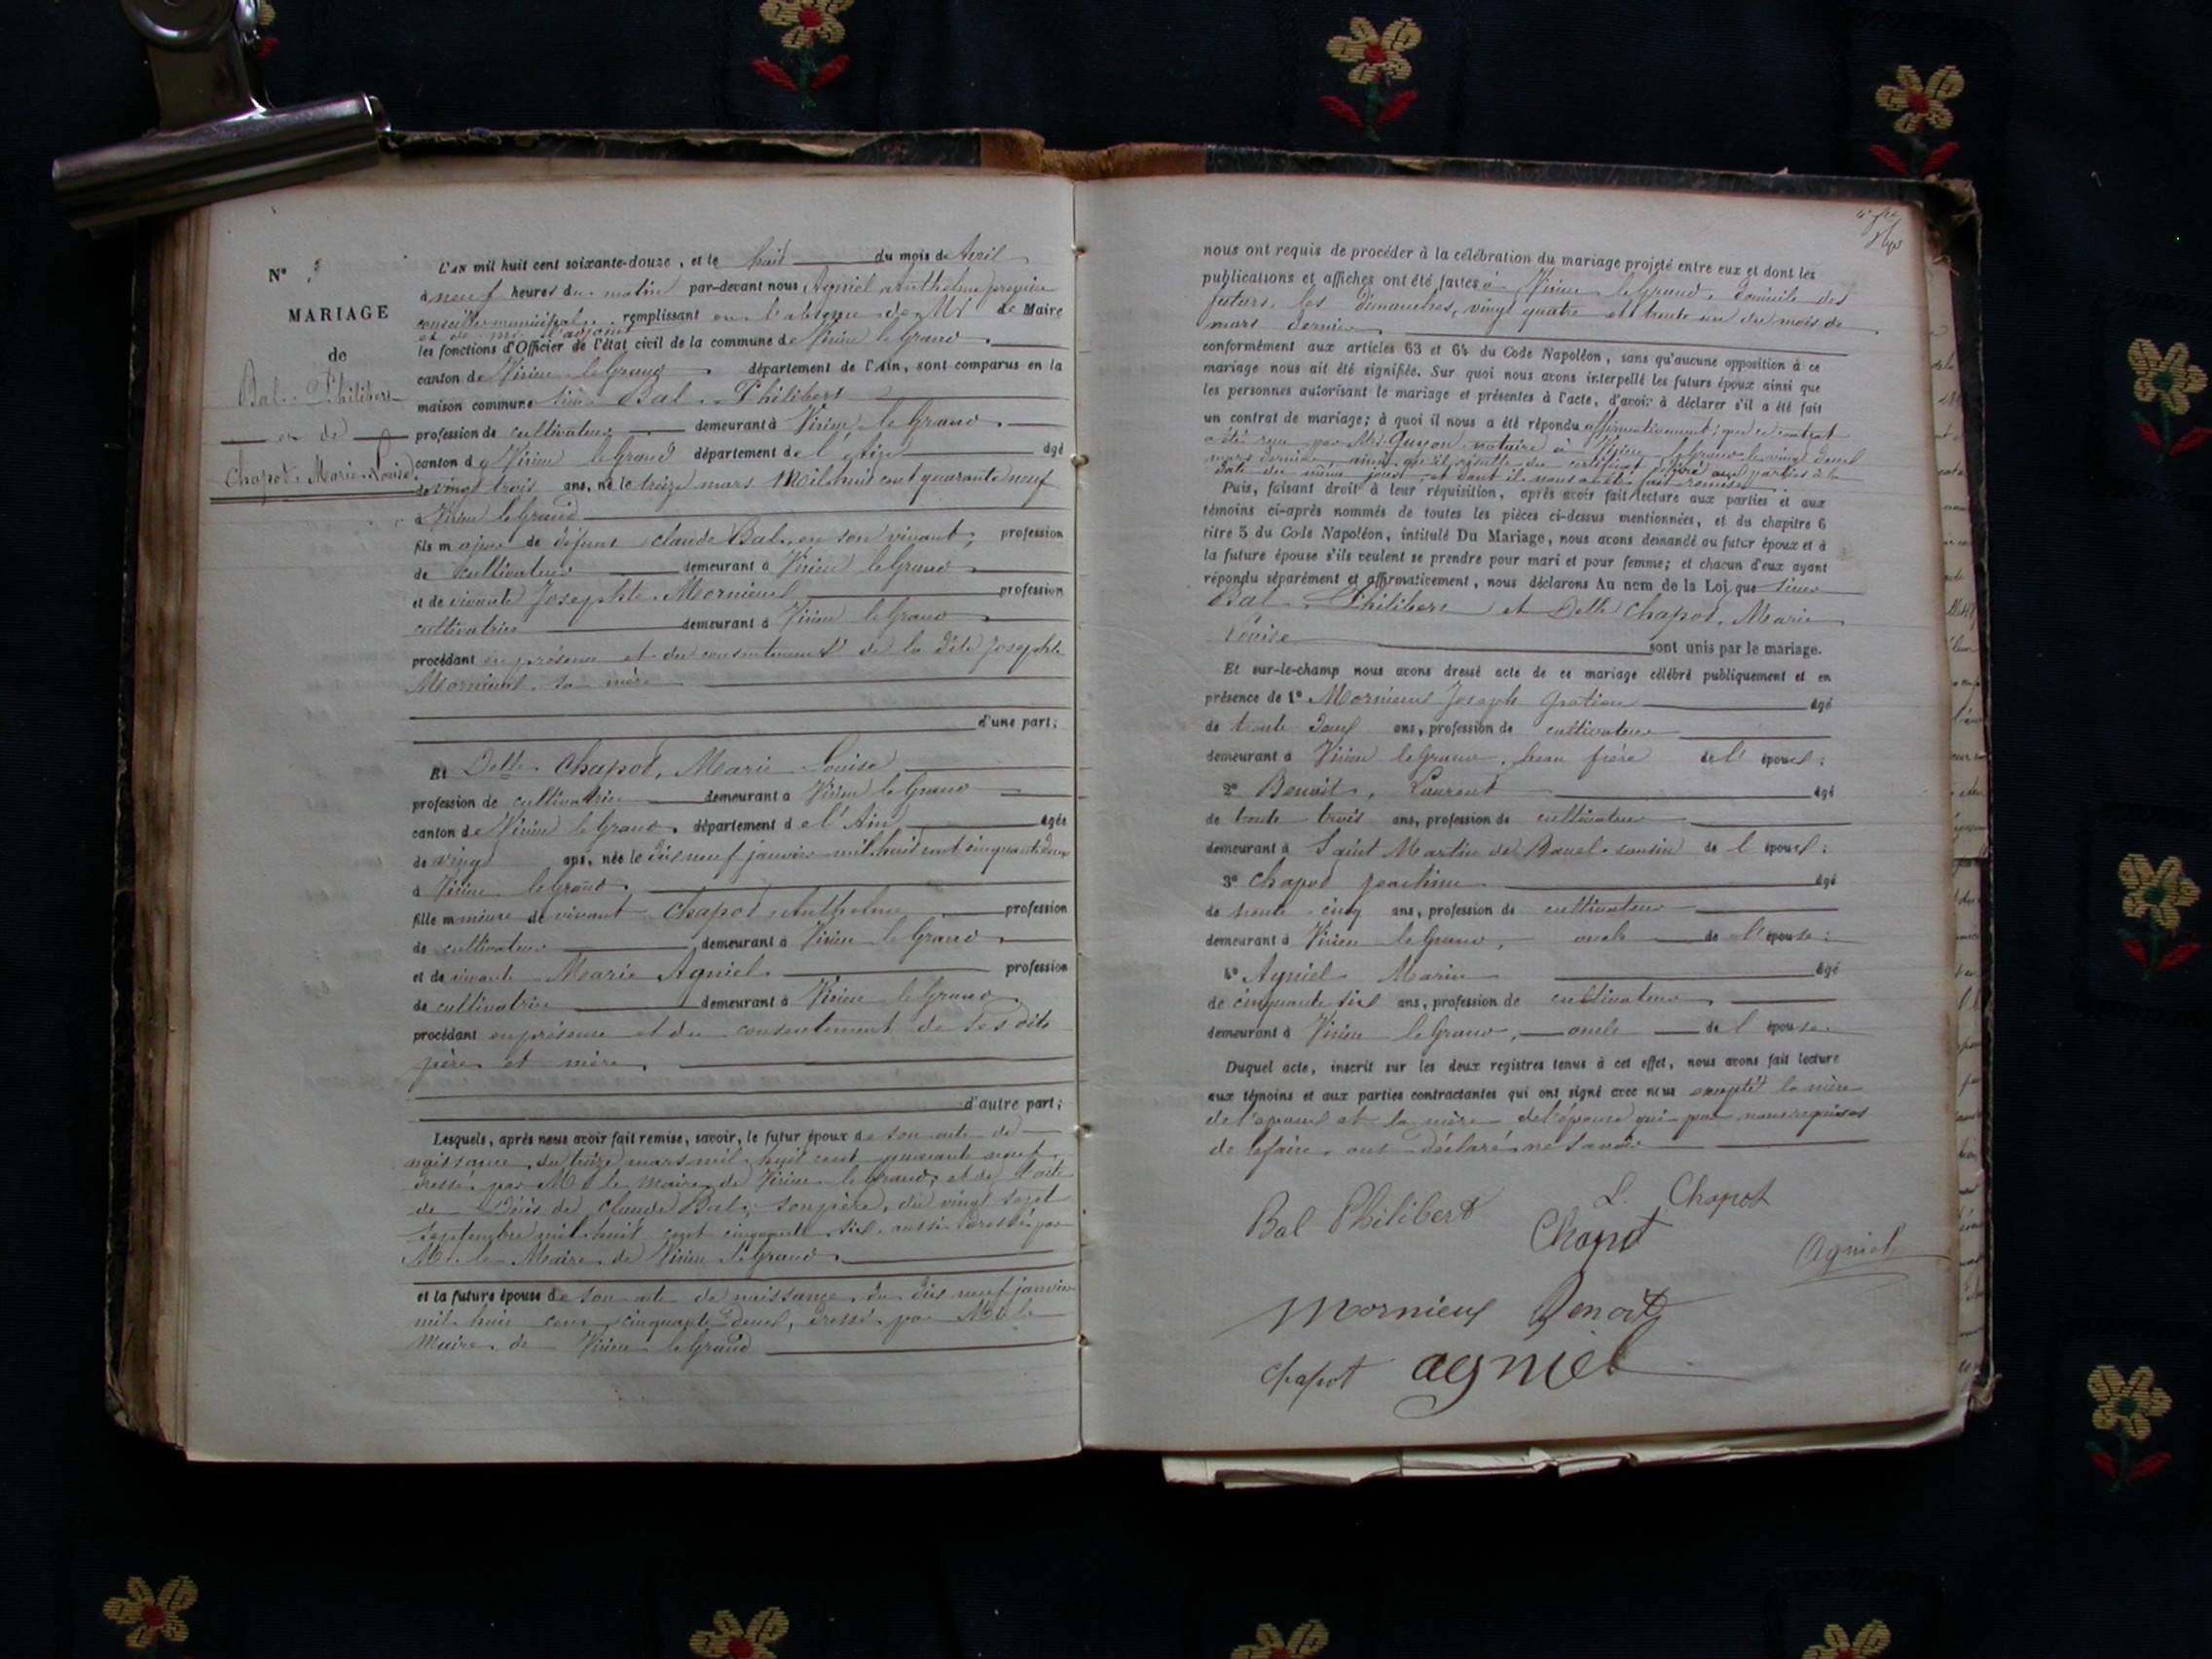 N°
MARIAGE
de
Bal Philibert
et de
Chapot Marie Louise
L'AN mil huit cent soixante-douze, et le huit du mois de Avril
à neuf heures du matin par-devant nous Agniel Anthelme premier
conseiller municipal remplissant en l'absence de Mr le Maire
et de l'adjoint
les fonctions d'Officier de l'état civil de la commune de Virieu le Grand
canton de Virieu le Grand département de l'Ain, sont comparus en la
maison commune sieur Bal Philibert
profession de cultivateur demeurant à Virieu le Grand
canton de Virieu le Grand département de l'Ain âgé
de vingt trois ans, né le treize mars mil huit cent quarante neuf
à Virieu le Grand
fils majeur de défunt Claude Bal, en son vivant, profession
de cultivateur demeurant à Virieu le Grand
et de vivante Josephte Mornieux profession
cultivatrice demeurant à Virieu le Grand
procédant en présence et du consentement de la dite Josephte
Mornieux sa mère
d'une part;
Et Delle Chapot, Marie Louise
profession de cultivatrice demeurant à Virieu le Grand
canton de Virieu le Grand, département de l'Ain âgée
de vingt ans, née le dix neuf janvier mil huit cent cinquante deux
à Virieu le Grand,
fille mineure de vivant Chapot Anthelme profession
de cultivateur demeurant à Virieu le Grand
et de vivante Marie Agniel profession
de cultivatrice demeurant à Virieu le Grand
procédant en présence et du consentement de ses dits
père et mère,
d'autre part;
Lesquels, après nous avoir fait remise, savoir, le futur époux de son acte de
naissance du treize mars mil huit cent quarante neuf,
dressé par Mr le Maire de Virieu le Grand, et de l'acte
de décès de Claude Bal, son père, du vingt sept
septembre mil huit cent cinquante six aussi dressé par
Mr le Maire de Virieu le Grand
et la future épouse de son acte de naissance du dix neuf janvier
mil huit cent cinquante deux, dressé par Mr le
Maire de Virieu le Grand
nous ont requis de procéder à la célébration du mariage projeté entre eux et dont les
publications et affiches ont été faites à Virieu le Grand, domicile des
futurs, les dimanches, vingt quatre et trente un du mois de
mars dernier
conformément aux articles 63 et 64 du Code Napoléon, sans qu'aucune opposition à ce
mariage nous ait été signifiée. Sur quoi nous avons interpellé les futurs époux ainsi que
les personnes autorisant le mariage et présentes à l'acte, d'avoir à déclarer s'il a été fait
un contrat de mariage; à quoi il nous a été répondu affirmativement; que ce contrat
a été reçu par Me notaire à Virieu le Grand le vingt deux
mars dernier, ainsi qu'il résulte du certificat délivré aux parties à la
date du même jour, et dont il nous a été fait remise
Puis, faisant droit à leur réquisition, après avoir fait lecture aux parties et aux
témoins ci-après nommés de toutes les pièces ci-dessus mentionnées, et du chapitre 6
titre 5 du Code Napoléon, intitulé Du Mariage, nous avons demandé au futur époux et à
la future épouse s'ils veulent se prendre pour mari et pour femme; et chacun d'eux ayant
répondu séparément et affirmativement, nous déclarons Au nom de la Loi que sieur
Bal Philibert et Delle Chapot, Marie
Louise
sont unis par le mariage.
Et sur-le-champ nous avons dressé acte de ce mariage célébré publiquement et en
présence de 1° Mornieux Joseph Gratien âgé
de trente deux ans, profession de cultivateur
demeurant à Virieu le Grand, beau frère de l'époux;
2° Benoit, Laurent âgé
de trente trois ans, profession de cultivateur
demeurant à Saint Martin de Bavel cousin de l'époux;
3° Chapot Joachim âgé
de trente cinq ans, profession de cultivateur
demeurant à Virieu le Grand, oncle de l'épouse;
4° Agniel Marin âgé
de cinquante six ans, profession de cultivateur,
demeurant à Virieu le Grand, oncle de l'épouse.
Duquel acte, inscrit sur les deux registres tenus à cet effet, nous avons fait lecture
aux témoins et aux parties contractantes qui ont signé avec nous excepté la mère
de l'époux et la mère de l'épouse qui par nous requises
de le faire, ont déclaré ne savoir
Bal Philibert
L. Chapot
Chapot
Agniel
Mornieux Benoit
Chapot agniel